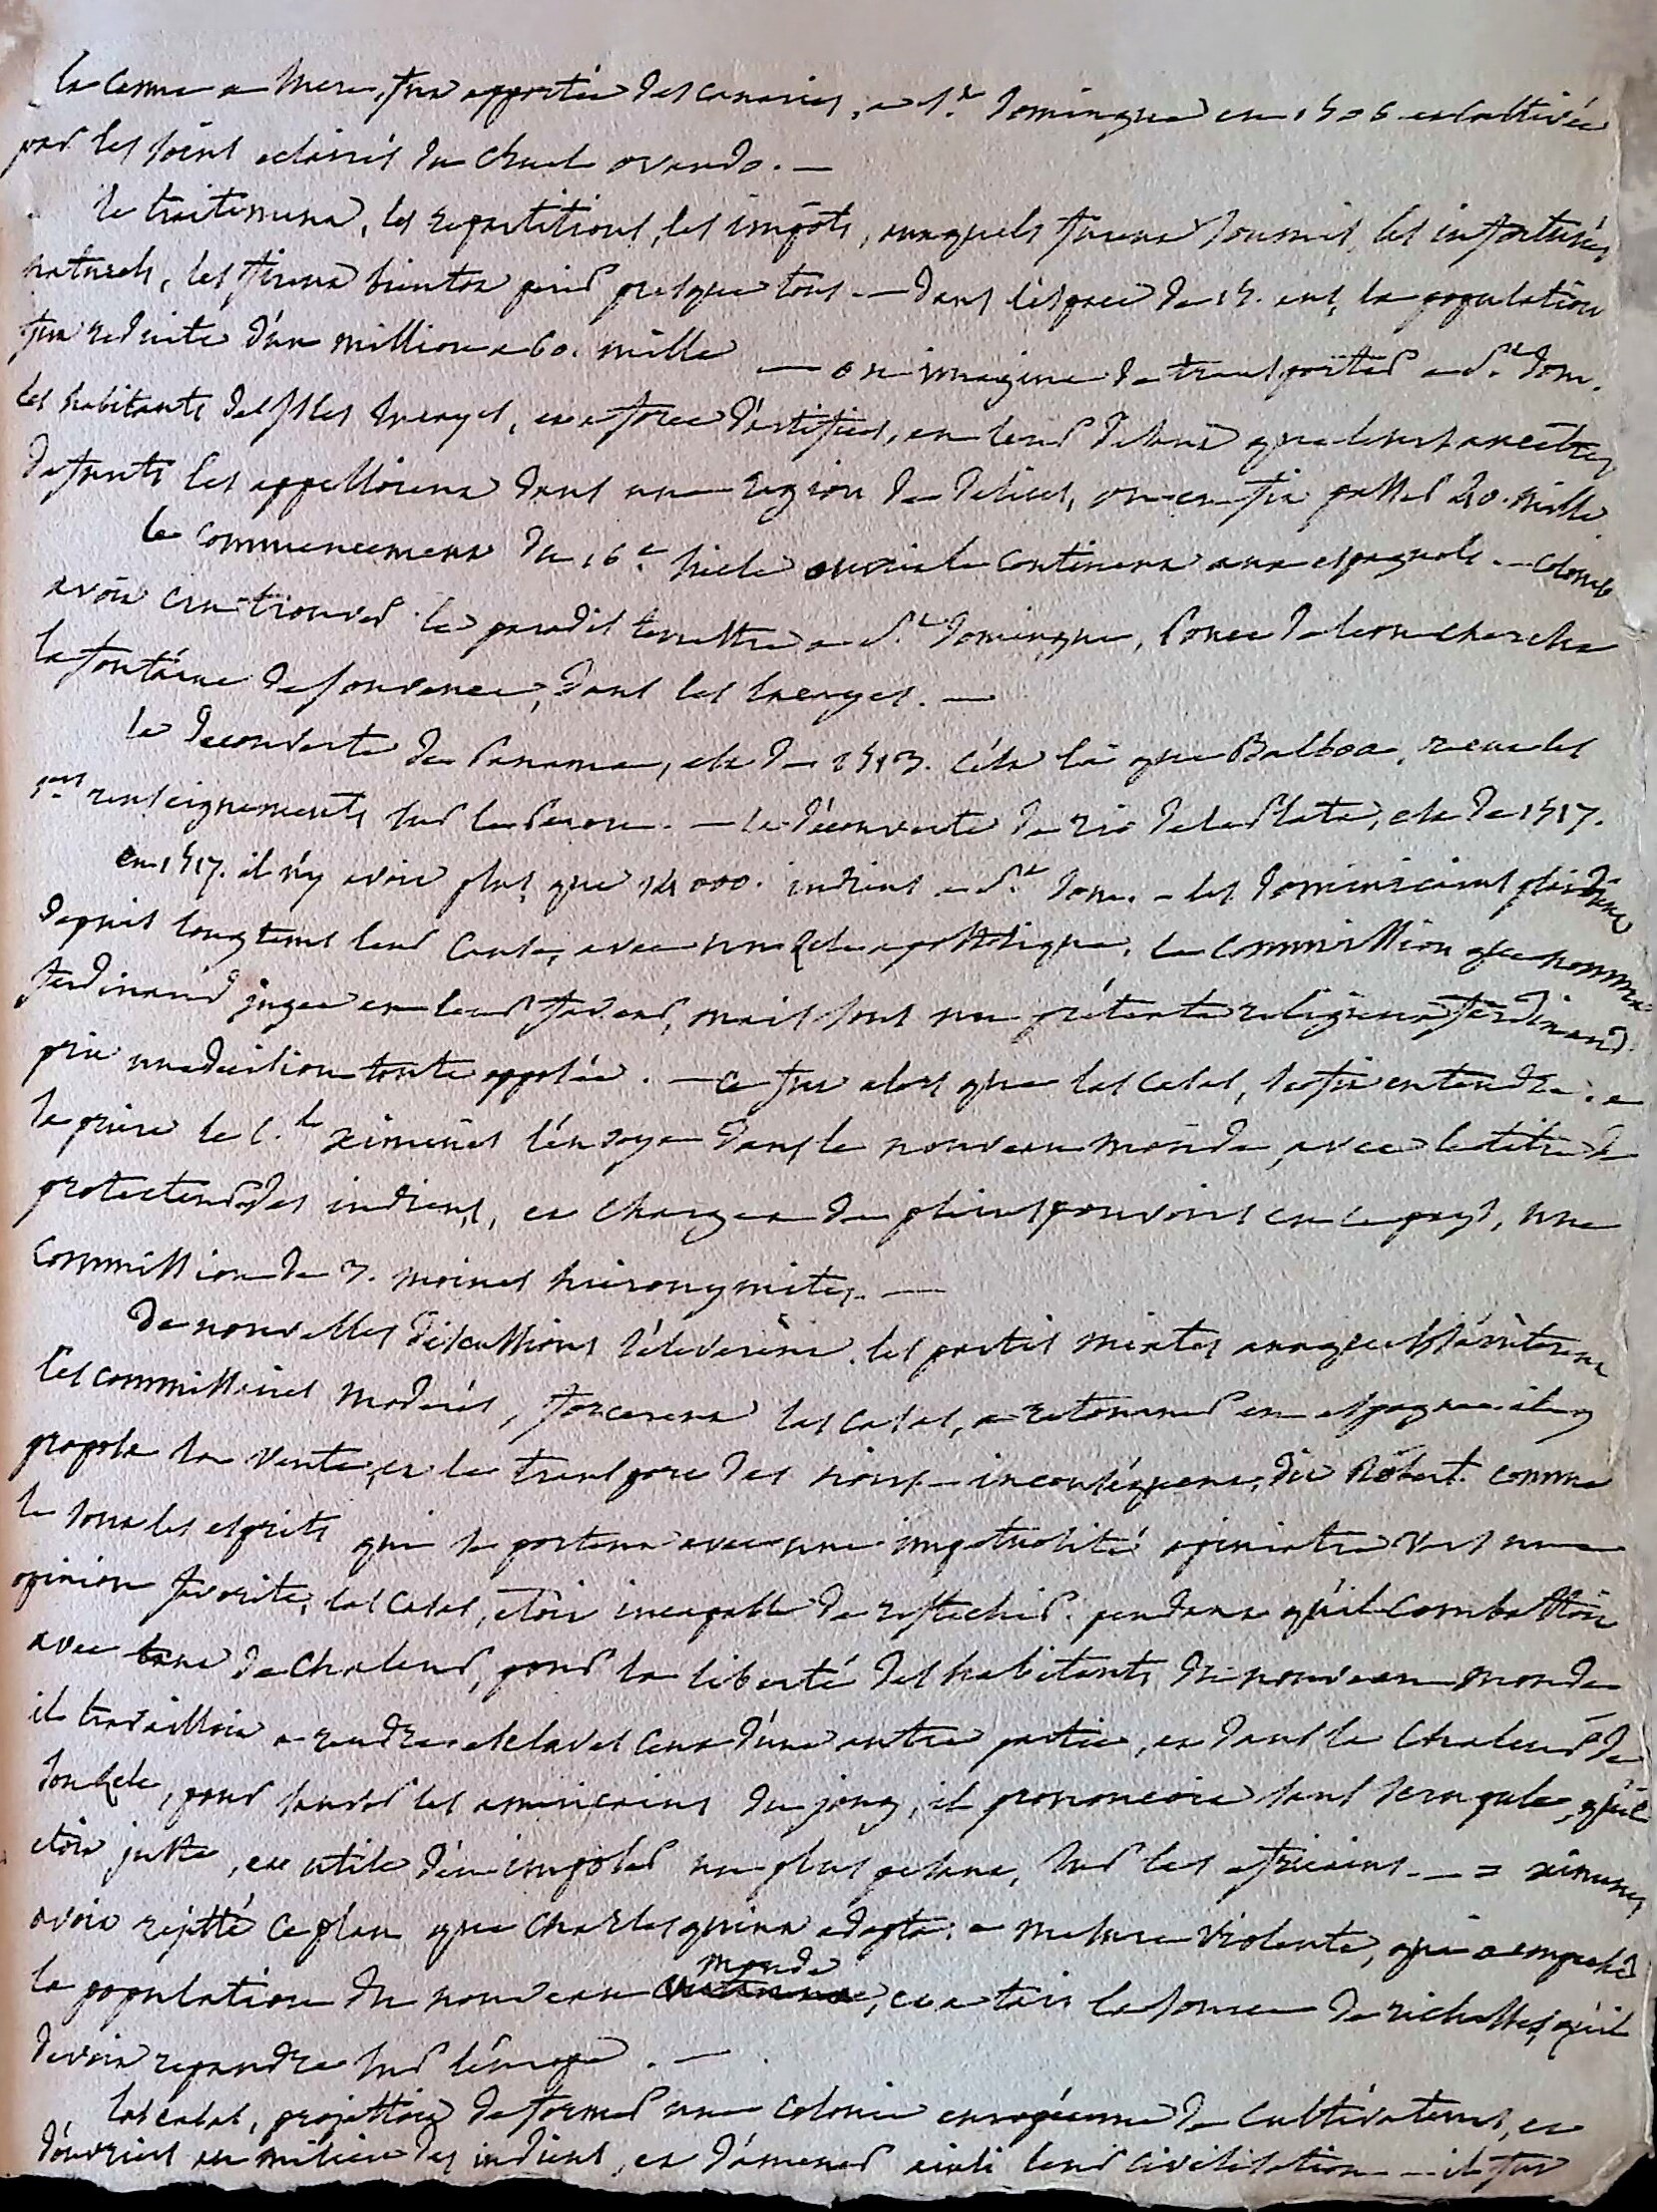 la canne a sucre, fut apportée des canaries, a St. Domingue en 1506 et cultivée
par les soins eclairés du chev. ovando. —
le traitement, les repartitions, les impots, auxquels furent soumis, les infortunés
naturels, les firent bientot perir presque tous. — dans l'espace de 15. ans, la population
fut reduite d'un million a 60. mille — on imagina de transporter a St. Dom.
les habitants des Isles Lucayes, et a force d'artifices, en leur disant que leurs ancêtres
defunts les appelloient dans une region de delices, on en fit passer 40. mille.
le commencement du 16e. siecle ouvrit le continent aux espagnols. — Colomb
avoit cru trouver le paradis terrestre a St. Domingue, Ponce de leon chercha
la fontaine de Jouvence, dans les lucayes. —
la decouverte de Panama, est de 1513. c'est là que Balboa, recut les
1ers renseignements sur le Perou. — la découverte de rio de la Plata, est de 1517.
en 1517. il n'y avoit plus que 14000. indiens a St. Dom. — les dominicains plaidoient
depuis longtems leur cause, avec un zele apostolique. la commission que nomma
ferdinand jugea en leur faveur, mais sous un prétexte religieux ferdinand
prit une decision toute opposée. — ce fut alors que las casas, se fit entendre. a
sa priere le C.al ximenès l'envoya dans le nouveau monde, avec le titre de
protecteur des indiens, et chargea de pleins pouvoirs en ce pays, une
commission de 3. moines hieronymites. —
de nouvelles discussions s'éleverent. les partis mixtes auxquels s'arrêterent
les commissaires moderés, forcerent las casas, a retourner en espagne. il y
proposa la vente, et le transport des noirs. — inconséquent, dit Robert. comme
le sont les esprits qui se portent avec une impetuosité opiniatre vers une
opinion favorite, las casas, etoit incapable de reflechir. pendant qu'il combattoit
avec tant de chaleur, pour la liberté des habitants du nouveau monde
il travailloit a rendre esclaves ceux d'une autre partie, et dans la chaleur de
son zele, pour sauver les americains du joug, il prononcoit sans scrupule, qu'il
etoit juste, et utile d'en imposer un plus pesant, sur les africains. — = ximenes
avoit rejetté ce plan que charles quint adopta. = mesure violente, qui a empeché
la population du nouveau monde, et a tari la source de richesses, qu'il
devoit repandre sur l'europe. —
las casas, projettoit de former une colonie européenne de cultivateurs, et
d'ouvriers au milieu des indiens, et d'amener ainsi leur civilisation — il fut